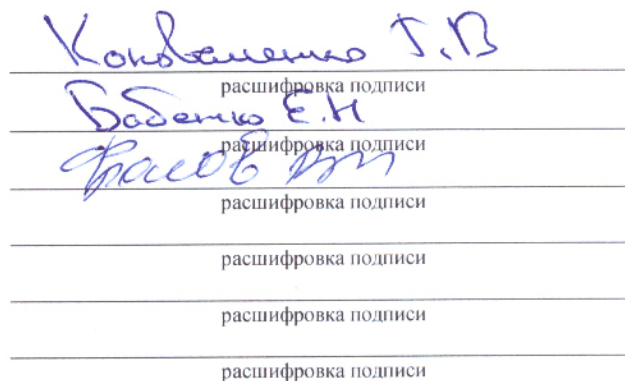 Коноваленко Т.В
расшифровка подписи
Бабенко Е.Н
расшифровка подписи
расшифровка подписи
расшифровка подписи
расшифровка подписи
расшифровка подписи